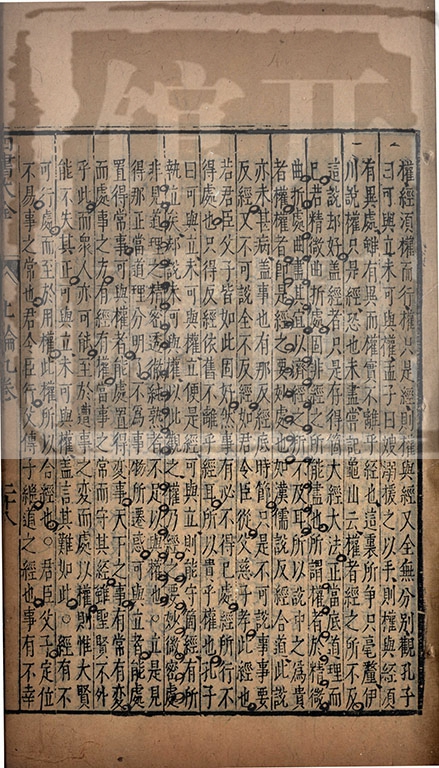 權經須權而行權只是經則權與經又全無分別觀孔子
曰可與立未可與權孟子曰嫂溺援之以手則權與經須
有異處雖有異而權實不離乎經也這裏所争只毫釐伊
川說權只是經恐也未盡嘗記龜山云權者經之所不及
這說却好蓋經者只是存得箇大經大法正當底道理而
已若精微曲折處固非經之所能盡也所謂權者於精微
曲折處曲盡其宜以濟經之所不及耳所以說中之爲貴
者權權者即是經之要妙處也如漢儒說反經合道此語
亦未甚病蓋事也有那反經底時節只是不可說事事要
反經又不可說全不反經如君令臣從父慈子孝此經也
若君臣父子皆如此固好然事有必不得已處經所行不
得處也只得反經依舊不離乎經耳所以貴乎權也孔子
曰可與立未可與權立便是經可與立則能守箇經有所
執立矣却說未可與權以此觀之權乃經之要妙微密處
非見道理之精密透徹純熟者不足以語權也○立是見
得那正當道理分明了不爲事物所遷惑可與立者能處
置得常事可與權者能處置得變事○天下之事有常有變
而處事之方有經有權當事之常而守其經雖聖賢不外
乎此而衆人亦可能至於遭事之變而處以權則惟大賢
能不失其正可與立未可與權蓋言其難如此○經有不
可行處而至於用權此權所以合經也○君臣父子定位
不易事之常也君令臣行父傳子繼道之經也事有不幸
四書大全 上論九卷 二十八